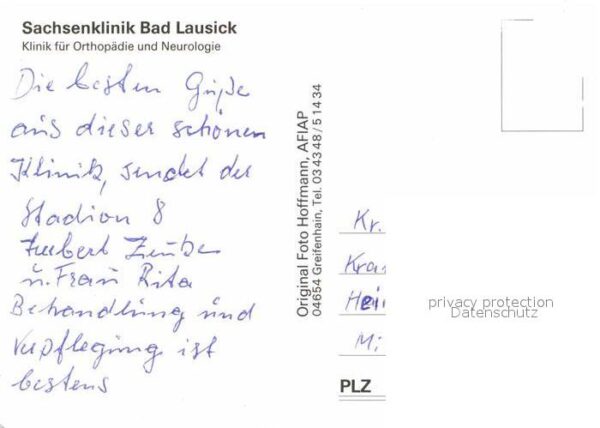 Sachsenklinik Bad Lausick
Klinik für Orthopädie und Neurologie
Die besten Grüße
aus dieser schönen
Klinik, sendet der
Stadion 8
Herbert
u. Frau Rita
Behandlung und
Verpflegung ist
bestens
Original Foto Hoffmann, AFIAP
04654 Greifenhain, Tel. 03 43 48 / 5 14 34
Kr.
Kra
Hei
Mi
PLZ
privacy protection
Datenschutz